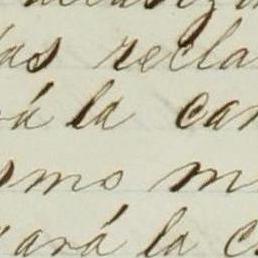 las recla
rá la can
omo m
gará la c